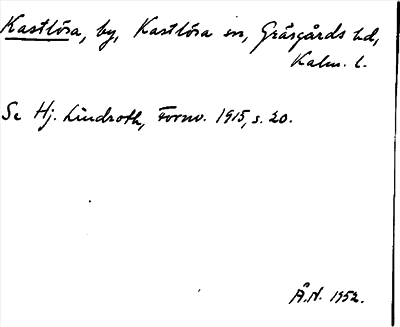 Kastlösa, by, Kastlösa sn, Gräsgårds hd,
Kalm. l.
Se Hj. Lindroth, Fornv. 1915, s. 20.
Å.N. 1952.